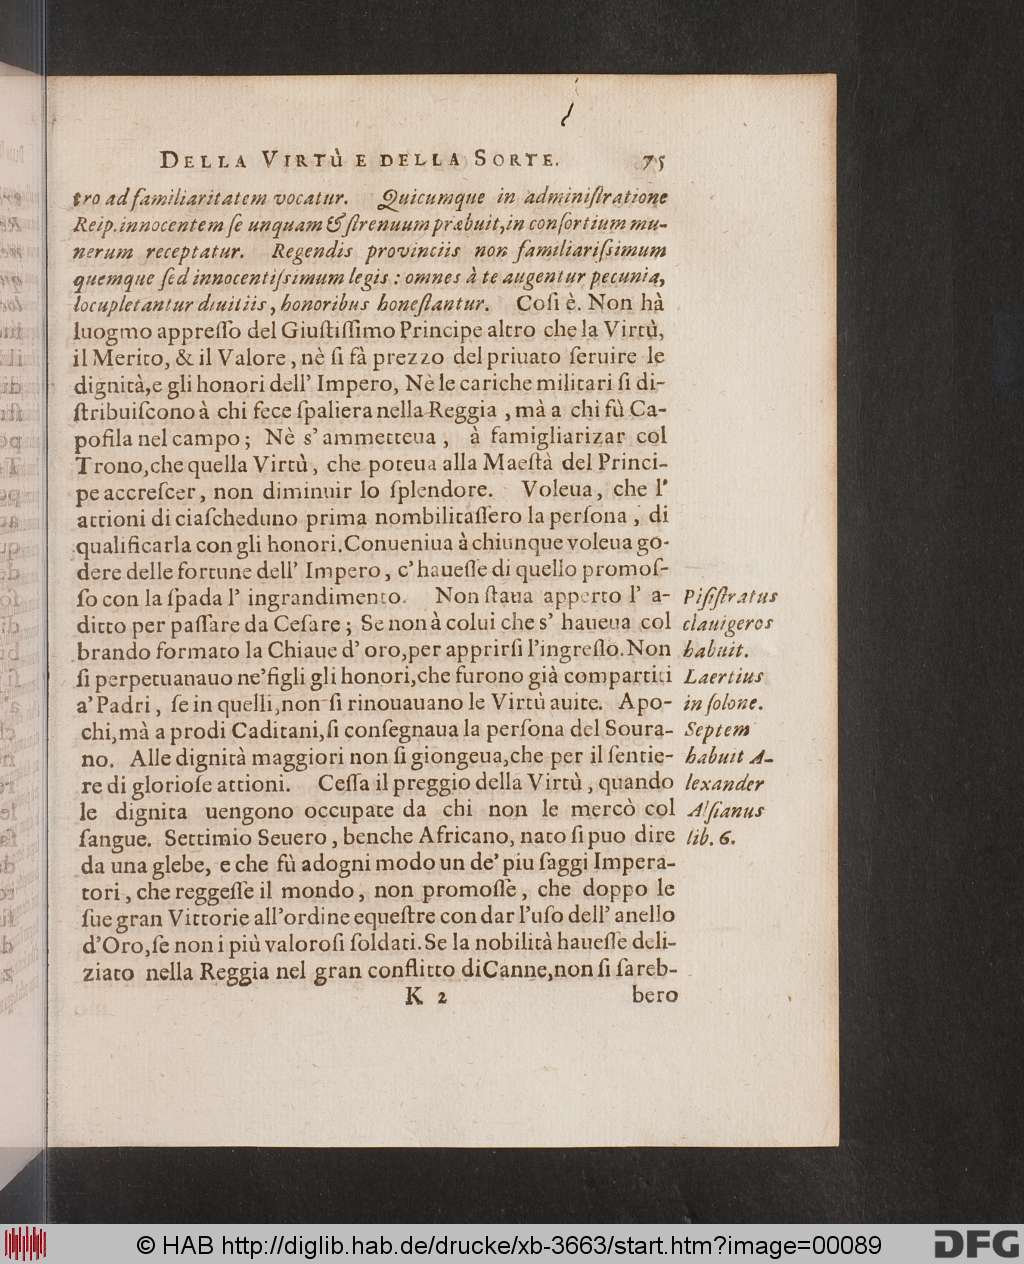 DELLA VIRTÙ E DELLA SORTE. 75
tro ad familiaritatem vocatur. Quicumque in adminiſtratione
Reip. innocentem ſe unquam & ſtrenuum præbuit, in conſortium mu-
nerum receptatur. Regendis provinciis non familiariſsimum
quemque ſed innocentiſsimum legis : omnes à te augentur pecunia,
locupletantur diuitiis, honoribus honeſtantur. Coſi è. Non hà
luogmo appreſſo del Giuſtiſſimo Principe altro che la Virtù,
il Merito, & il Valore, nè ſi fà prezzo del priuato ſeruire le
dignità, e gli honori dell' Impero, Nè le cariche militari ſi di-
ſtribuiſcono à chi fece ſpaliera nella Reggia, mà a chi fù Ca-
pofila nel campo; Nè s' ammetteua, à famigliarizar col
Trono, che quella Virtù, che poteua alla Maeſtà del Princi-
pe accreſcer, non diminuir lo ſplendore. Voleua, che l'
attioni di ciaſcheduno prima nombilitaſſero la perſona, di
qualificarla con gli honori. Conueniua à chiunque voleua go-
dere delle fortune dell' Impero, c' haueſſe di quello promoſ-
ſo con la ſpada l' ingrandimento. Non ſtaua apperto l' a-
ditto per paſſare da Ceſare; Se non à colui che s' haueua col
brando formato la Chiaue d' oro, per apprirſi l'ingreſſo. Non
ſi perpetuanauo ne' figli gli honori, che furono già compartiti
a' Padri, ſe in quelli, non ſi rinouauano le Virtù auite. A po-
chi, mà a prodi Caditani, ſi conſegnaua la perſona del Soura-
no. Alle dignità maggiori non ſi giongeua, che per il ſentie-
re di glorioſe attioni. Ceſſa il preggio della Virtù, quando
le dignita uengono occupate da chi non le mercò col
ſangue. Settimio Seuero, benche Africano, nato ſi puo dire
da una glebe, e che fù adogni modo un de' piu ſaggi Impera-
tori, che reggeſſe il mondo, non promoſſe, che doppo le
ſue gran Vittorie all'ordine equeſtre con dar l'uſo dell' anello
d'Oro, ſe non i più valoroſi ſoldati. Se la nobilità haueſſe deli-
ziato nella Reggia nel gran conflitto diCanne, non ſi ſareb-
K 2 bero
Piſiſtratus
clauigeros
habuit.
Laertius
in ſolone.
Septem
habuit A-
lexander
Alſianus
lib. 6.
© HAB http://diglib.hab.de/drucke/xb-3663/start.htm?image=00089
DFG